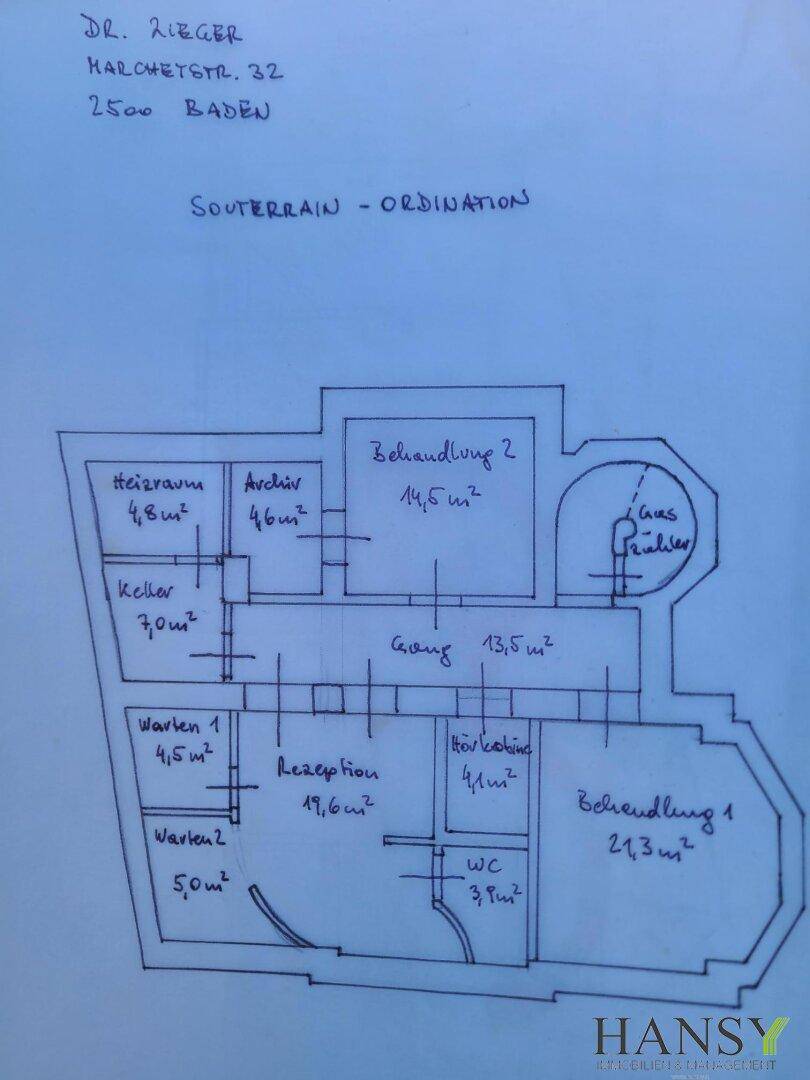 DR. ZIEGER
MARCHETSTR. 32
2500 BADEN
SOUTERRAIN - ORDINATION
Heizraum
4,8m²
Archiv
4,6m²
Behandlung 2
14,5 m²
Gas
zähler
Keller
7,0m²
Gang 13,5m²
Warten 1
4,5m²
Rezeption
19,6m²
Hörkabine
4,1m²
Behandlung 1
21,3m²
Warten 2
5,0m²
WC
3,9m²
HANSY
IMMOBILIEN & MANAGEMENT